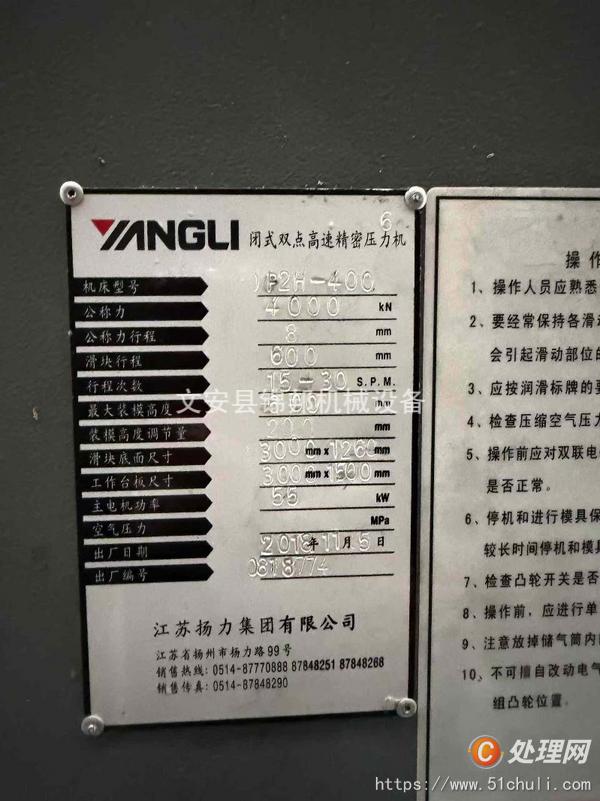 YANGLI 闭式双点高速精密压力机
6
机床型号 P2H-400
公称力 4000 kN
公称力行程 8 mm
滑块行程 600 mm
行程次数 15-30 S.P.M.
最大装模高度 mm
装模高度调节量 200 mm
滑块底面尺寸 3000 mm x 1260 mm
工作台板尺寸 3000 mm x 1500 mm
主电机功率 55 kW
空气压力 MPa
出厂日期 2018年11月5日
出厂编号 0818774
江苏扬力集团有限公司
江苏省扬州市扬力路99号
销售热线: 0514-87770888 87848251 87848268
销售传真: 0514-87848290
操作
1、操作人员应熟悉
2、要经常保持各滑动
会引起滑动部位的
3、应按润滑标牌的要
4、检查压缩空气压力
5、操作前应对双联电
是否正常。
6、停机和进行模具保
较长时间停机和模具
7、检查凸轮开关是否
8、操作前，应进行单
9、注意放掉储气筒内
10、不可擅自改动电气
组凸轮位置。
文安县 机械设备
C 处理网
https://www.51chuli.com/